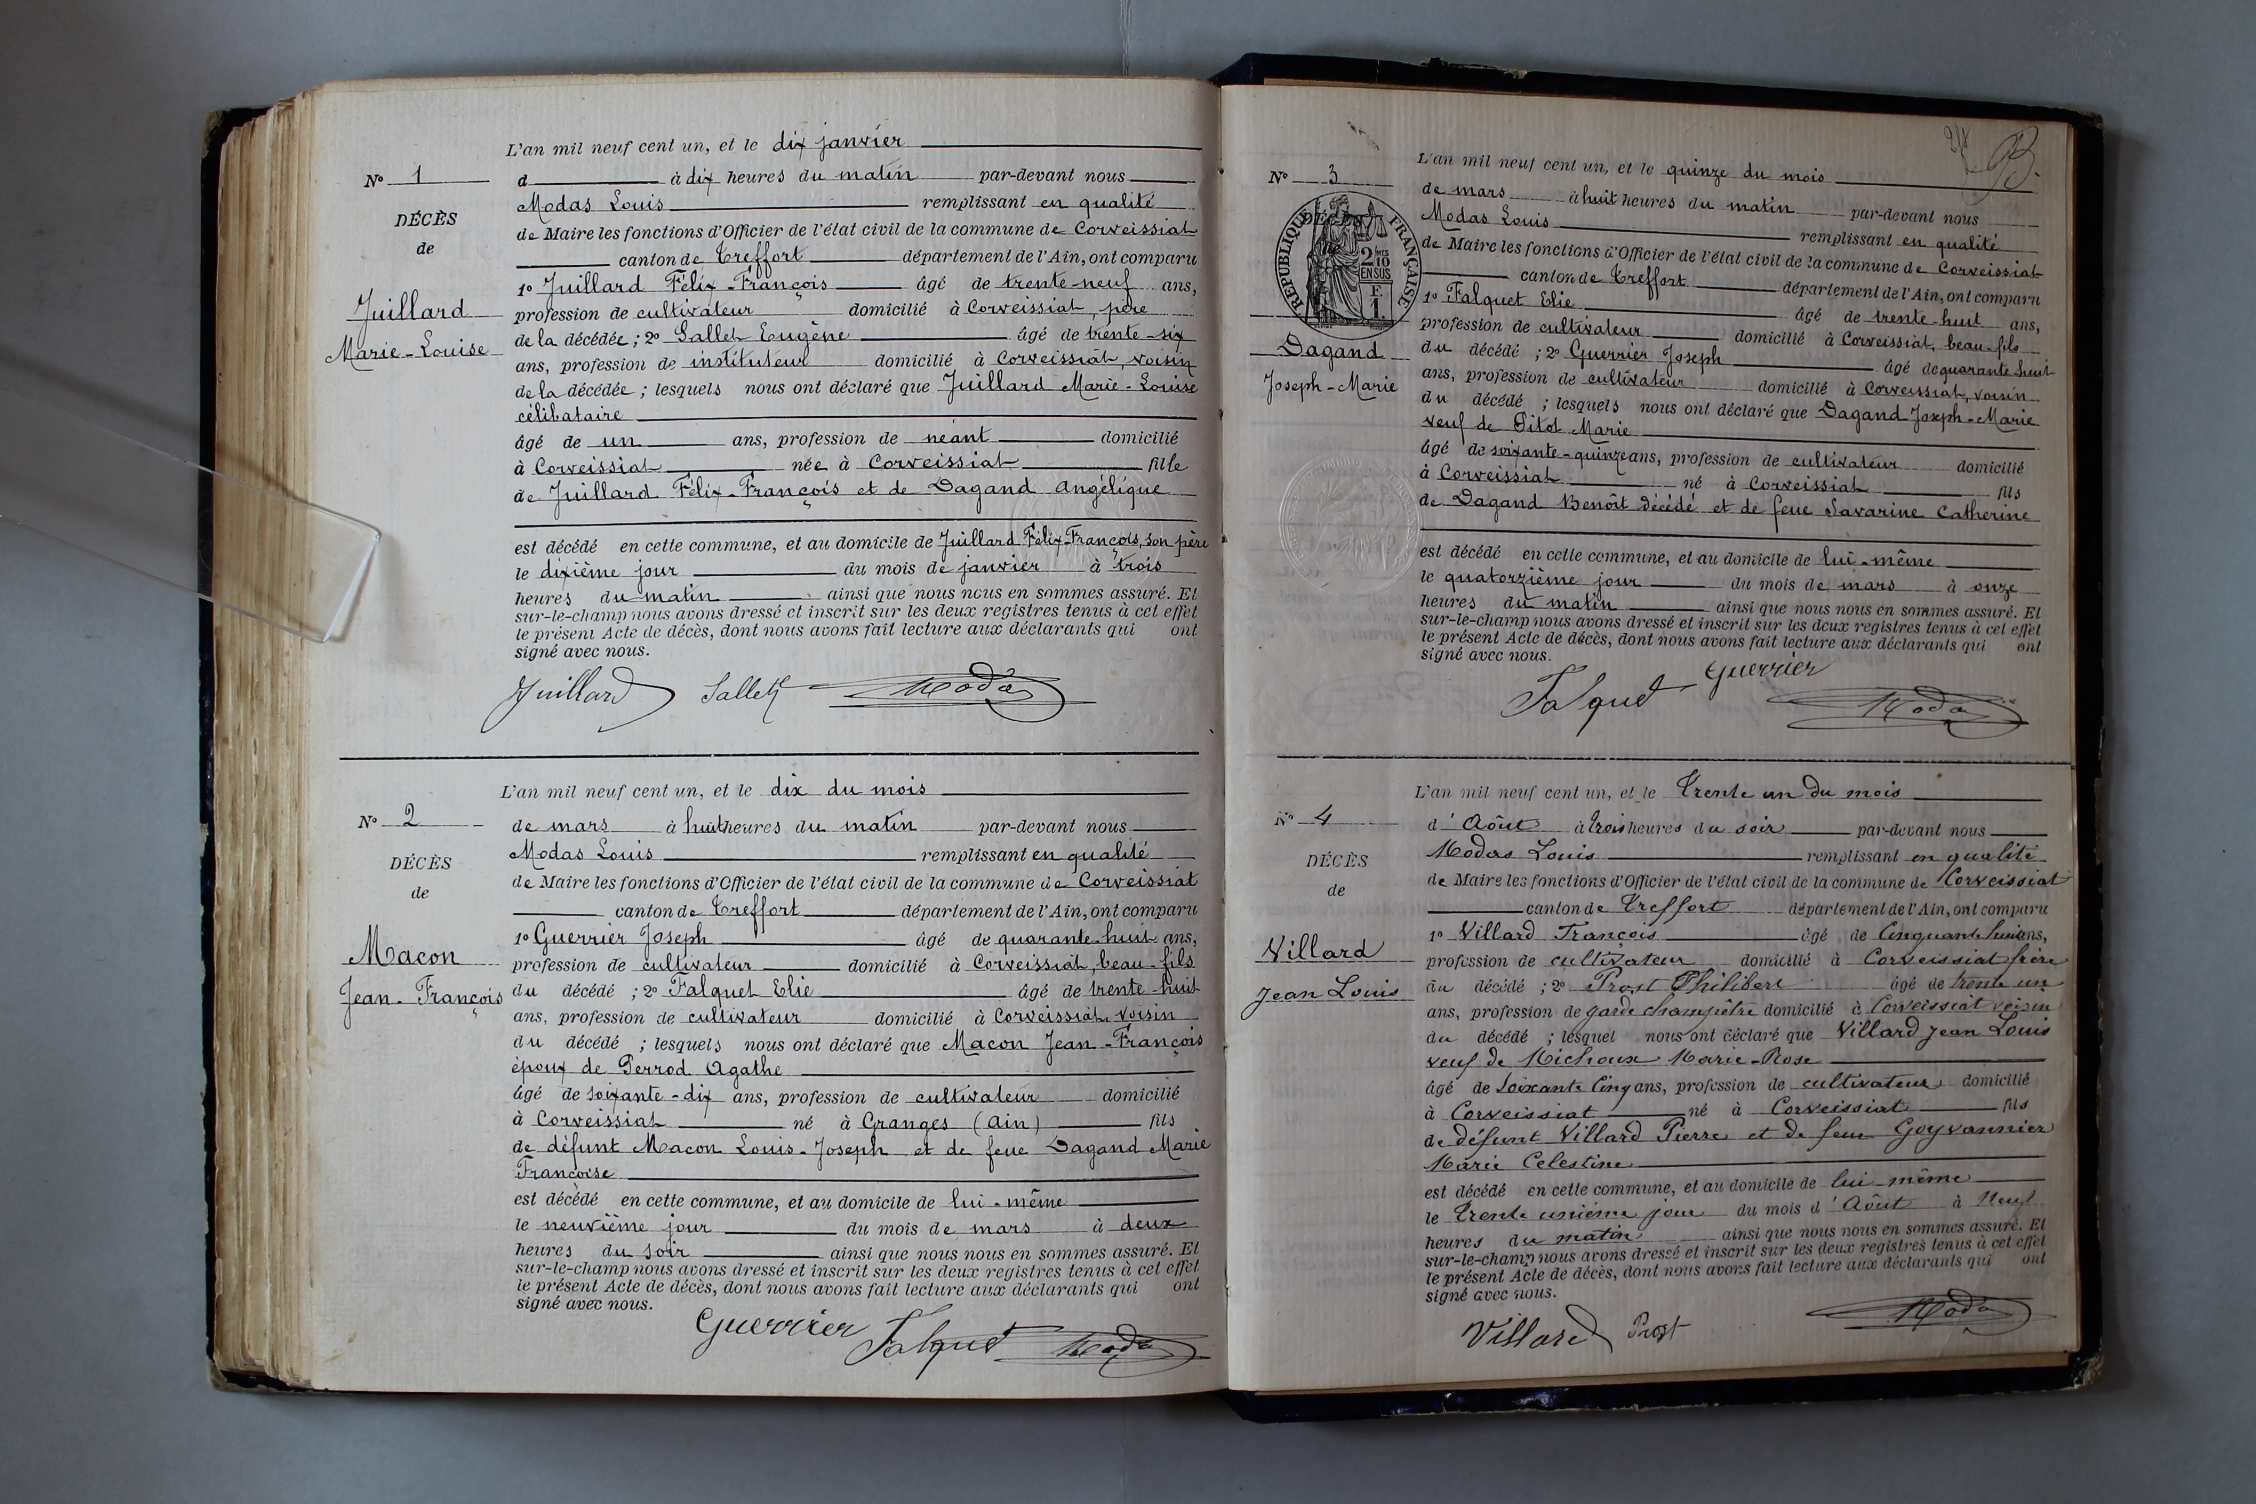 L'an mil neuf cent un, et le dix janvier
N° 1
d à dix heures du matin par-devant nous
Modas Louis remplissant en qualité
DÉCÈS
de Maire les fonctions d'Officier de l'état civil de la commune de Corveissiat
de
canton de Treffort département de l'Ain, ont comparu
1° Juillard Félix-François âgé de trente-neuf ans,
Juillard
profession de cultivateur domicilié à Corveissiat, père
de la décédée ; 2° Sallet Eugène âgé de trente-six
Marie-Louise
ans, profession de instituteur domicilié à Corveissiat, voisin
de la décédée ; lesquels nous ont déclaré que Juillard Marie-Louise
célibataire
âgé de un ans, profession de néant domicilié
à Corveissiat née à Corveissiat fille
de Juillard Félix-François et de Dagand Angélique
est décédé en cette commune, et au domicile de Juillard Félix-François, son père
le dixième jour du mois de janvier à trois
heures du matin ainsi que nous nous en sommes assuré. Et
sur-le-champ nous avons dressé et inscrit sur les deux registres tenus à cet effet
le présent Acte de décès, dont nous avons fait lecture aux déclarants qui ont
signé avec nous.
Juillard Sallet Modas
L'an mil neuf cent un, et le dix du mois
N° 2
de mars à huit heures du matin par-devant nous
Modas Louis remplissant en qualité
DÉCÈS
de Maire les fonctions d'Officier de l'état civil de la commune de Corveissiat
de
canton de Treffort département de l'Ain, ont comparu
1° Guerrier Joseph âgé de quarante-huit ans,
Macon
profession de cultivateur domicilié à Corveissiat, beau-fils
Jean-François
du décédé ; 2° Falquet Elie âgé de trente-huit
ans, profession de cultivateur domicilié à Corveissiat, voisin
du décédé ; lesquels nous ont déclaré que Macon Jean-François
époux de Perrod Agathe
âgé de soixante-dix ans, profession de cultivateur domicilié
à Corveissiat né à Granges (Ain) fils
de défunt Macon Louis-Joseph et de feue Dagand Marie
Françoise
est décédé en cette commune, et au domicile de lui-même
le neuvième jour du mois de mars à deux
heures du soir ainsi que nous nous en sommes assuré. Et
sur-le-champ nous avons dressé et inscrit sur les deux registres tenus à cet effet
le présent Acte de décès, dont nous avons fait lecture aux déclarants qui ont
signé avec nous.
Guerrier Falquet Modas
L'an mil neuf cent un, et le quinze du mois
N° 3
de mars à huit heures du matin par-devant nous
Modas Louis remplissant en qualité
RÉPUBLIQUE FRANÇAISE
2/10 EN SUS
F. 1.
de Maire les fonctions d'Officier de l'état civil de la commune de Corveissiat
canton de Treffort département de l'Ain, ont comparu
1° Falquet Elie âgé de trente-huit ans,
profession de cultivateur domicilié à Corveissiat, beau-fils
Dagand
du décédé ; 2° Guerrier Joseph âgé de quarante-huit
Joseph-Marie
ans, profession de cultivateur domicilié à Corveissiat, voisin
du décédé ; lesquels nous ont déclaré que Dagand Joseph-Marie
veuf de Pitot Marie
âgé de soixante-quinze ans, profession de cultivateur domicilié
à Corveissiat né à Corveissiat fils
de Dagand Benoît décédé et de feue Savarine Catherine
est décédé en cette commune, et au domicile de lui-même
le quatorzième jour du mois de mars à onze
heures du matin ainsi que nous nous en sommes assuré. Et
sur-le-champ nous avons dressé et inscrit sur les deux registres tenus à cet effet
le présent Acte de décès, dont nous avons fait lecture aux déclarants qui ont
signé avec nous.
Falquet Guerrier Modas
L'an mil neuf cent un, et le trente un du mois
N° 4
d'Août à trois heures du soir par-devant nous
Modas Louis remplissant en qualité
DÉCÈS
de Maire les fonctions d'Officier de l'état civil de la commune de Corveissiat
de
canton de Treffort département de l'Ain, ont comparu
1° Villard François âgé de Cinquante huit ans,
Villard
profession de cultivateur domicilié à Corveissiat frère
Jean Louis
du décédé ; 2° Prost Philibert âgé de trente un
ans, profession de garde champêtre domicilié à Corveissiat voisin
du décédé ; lesquel nous ont déclaré que Villard Jean Louis
veuf de Michoux Marie-Rose
âgé de Soixante Cinq ans, profession de cultivateur domicilié
à Corveissiat né à Corveissiat fils
de défunt Villard Pierre et de feue Goyvannier
Marie Celestine
est décédé en cette commune, et au domicile de lui-même
le trente unième jour du mois d'Août à Neuf
heures du matin ainsi que nous nous en sommes assuré. Et
sur-le-champ nous avons dressé et inscrit sur les deux registres tenus à cet effet
le présent Acte de décès, dont nous avons fait lecture aux déclarants qui ont
signé avec nous.
Villard Prost Modas